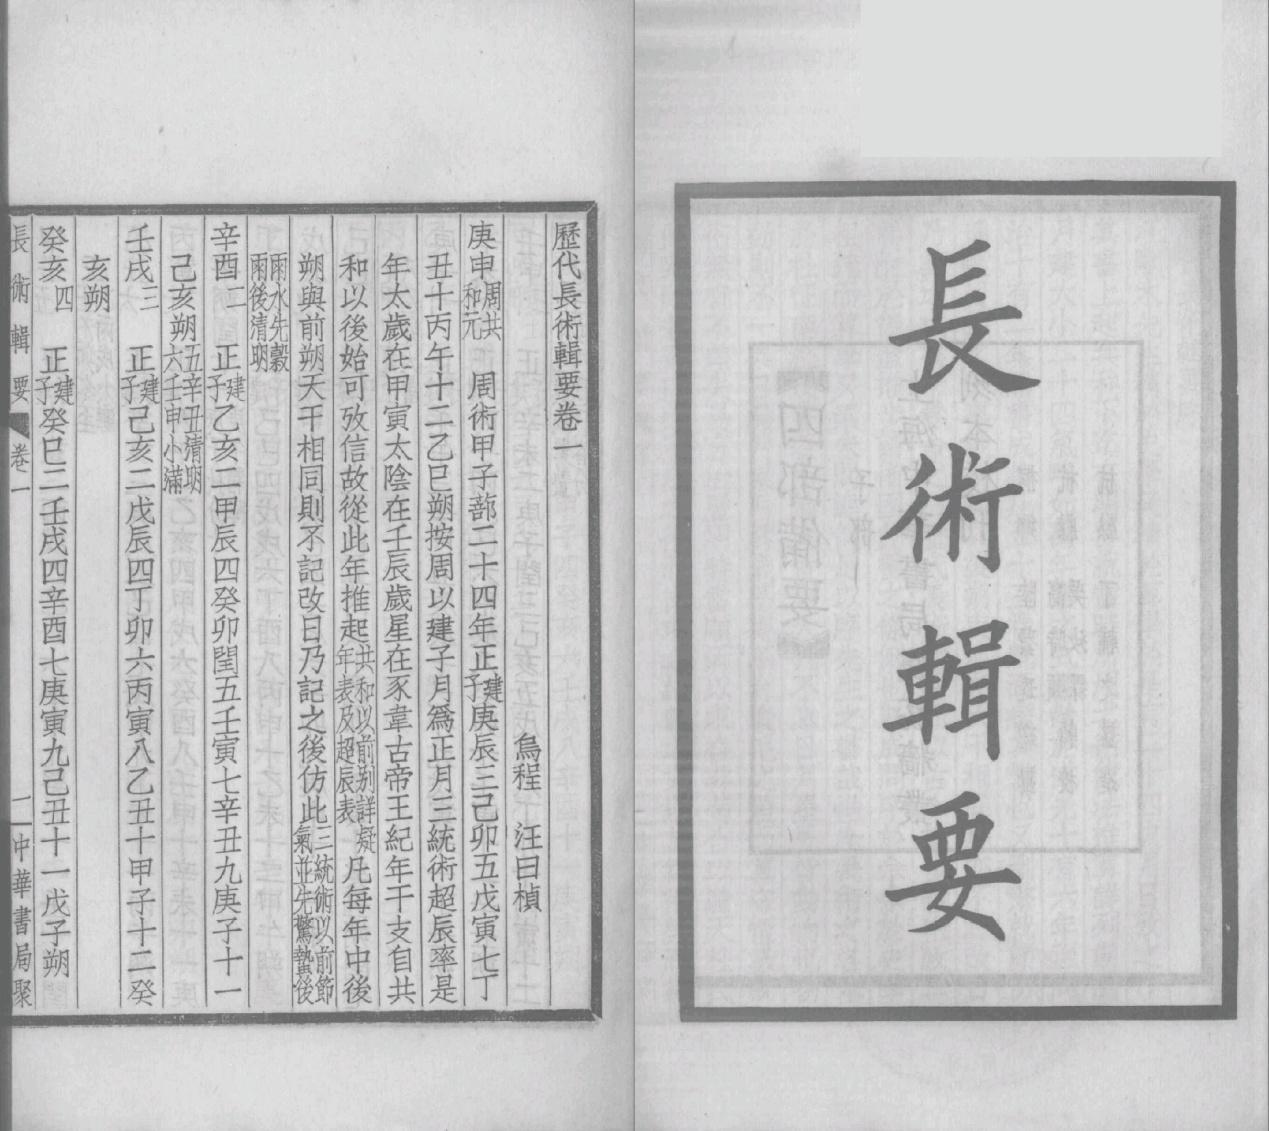 長術輯要
歷代長術輯要卷一
烏程 汪曰楨
庚申周共和元 周術甲子蔀二十四年正建子庚辰三己卯五戊寅七丁
丑十丙午十二乙巳朔按周以建子月爲正月三統術超辰率是
年太歲在甲寅太陰在壬辰歲星在豕韋古帝王紀年干支自共
和以後始可攷信故從此年推起共和以前别詳擬年表及超辰表凡每年中後
朔與前朔天干相同則不記改日乃記之後仿此三統術以前節氣並先驚蟄後
雨水先穀雨後清明
辛酉二 正建子乙亥二甲辰四癸卯閏五壬寅七辛丑九庚子十一
己亥朔五辛丑清明六壬申小滿
壬戌三 正建子己亥二戊辰四丁卯六丙寅八乙丑十甲子十二癸
亥朔
癸亥四 正建子癸巳二壬戌四辛酉七庚寅九己丑十一戊子朔
長術輯要 卷一 一 中華書局聚